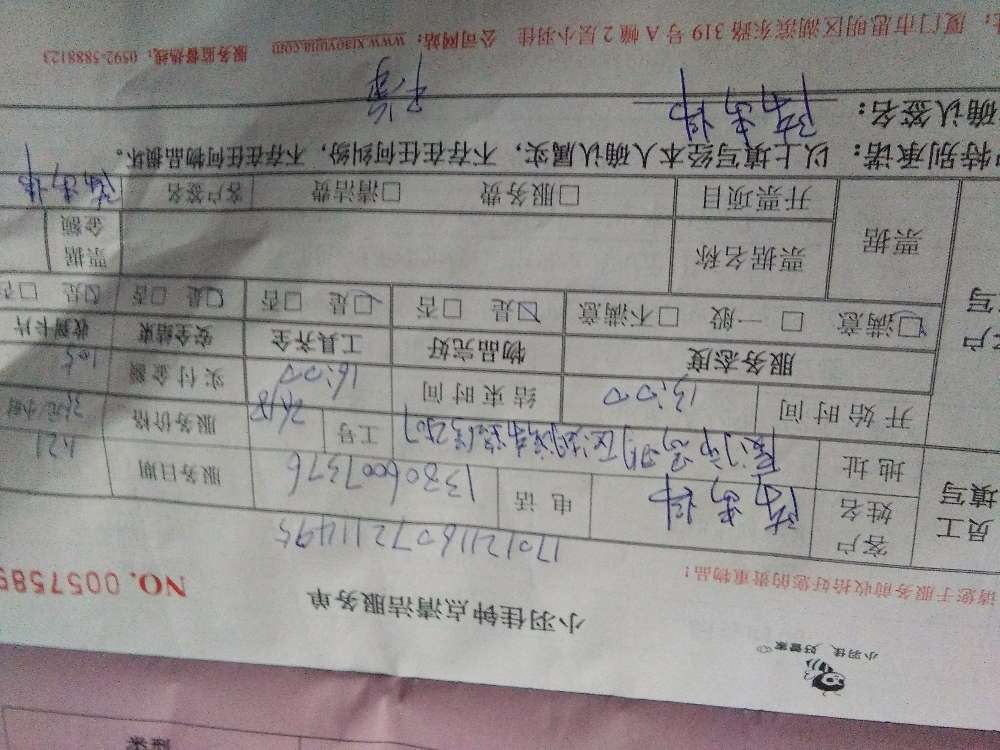 小羽佳，好管家
小羽佳钟点清洁服务单
NO. 005758
请您于服务前收拾好您的贵重物品！
17012116072114495
员工填写
客户姓名
电话 13806007376
服务日期 1.21
地址
工号
服务价格
开始时间 13:00
结束时间 16:00
实付金额 105
服务态度 物品完好 工具齐全 安全结束 收到卡片
☑满意 □一般 □不满意 ☑是 □否 ☑是 □否 ☑是 □否 ☑是 □否
票据 票据名称 票据金额
开票项目 □服务费 □清洁费 客户签名
特别承诺：以上填写经本人确认属实，不存在任何纠纷，不存在任何物品损坏。
确认签名：
厦门市思明区湖滨东路 319 号 A 幢 2 层小羽佳 公司网站：www.xiaoyujia.com 服务监督热线：0592-5888123
类型